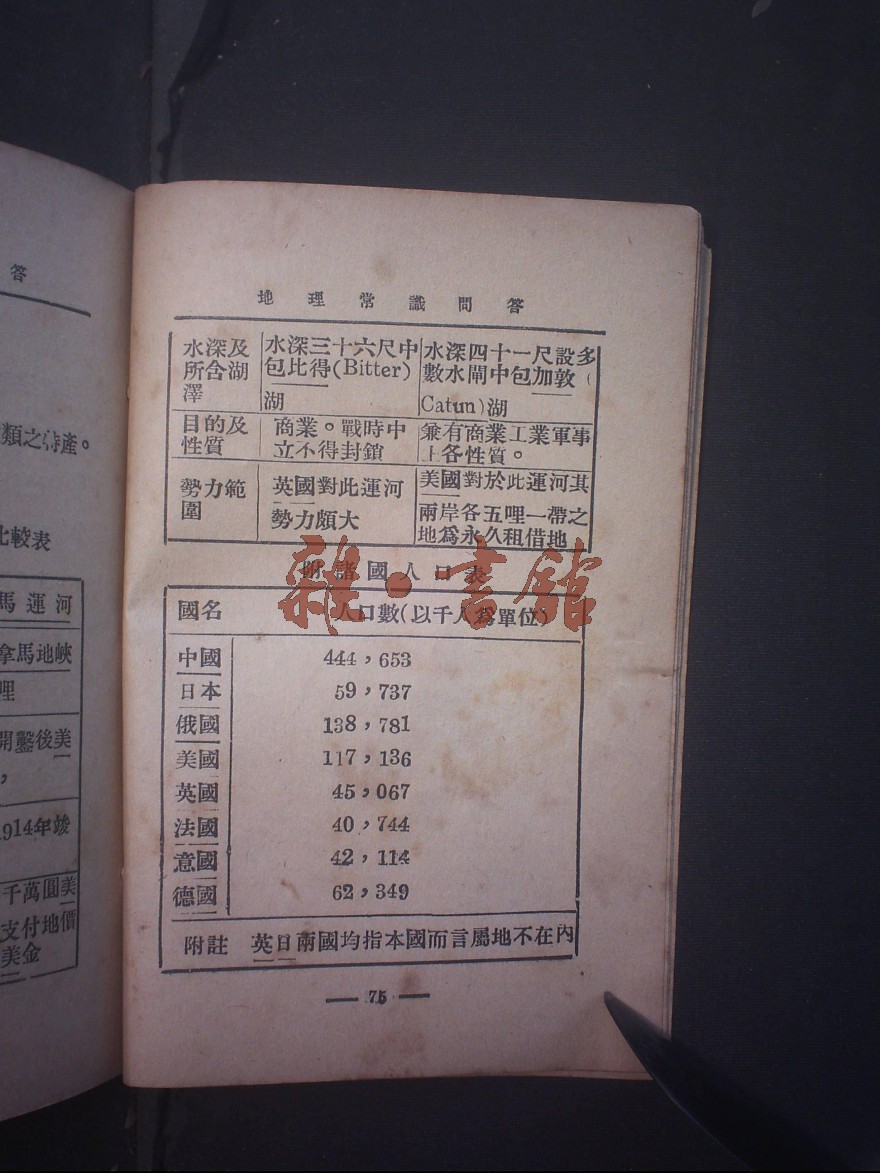 答
類之特產。
比較表
馬運河
拿馬地峽
哩
開鑿後美
，
1914年竣
千萬圓美
支付地價
美金
地理常識問答
水深及
所含湖
澤
水深三十六尺中
包比得(Bitter)
湖
水深四十一尺設多
數水閘中包加敦(
Catun)湖
目的及
性質
商業。戰時中
立不得封鎖
兼有商業工業軍事
上各性質。
勢力範
圍
英國對此運河
勢力頗大
美國對於此運河其
兩岸各五哩一帶之
地為永久租借地
附諸國人口表
國名 人口數(以千人為單位)
中國 444，653
日本 59，737
俄國 138，781
美國 117，136
英國 45，067
法國 40，744
意國 42，114
德國 62，349
附註 英日兩國均指本國而言屬地不在內
— 75 —
雜·書館